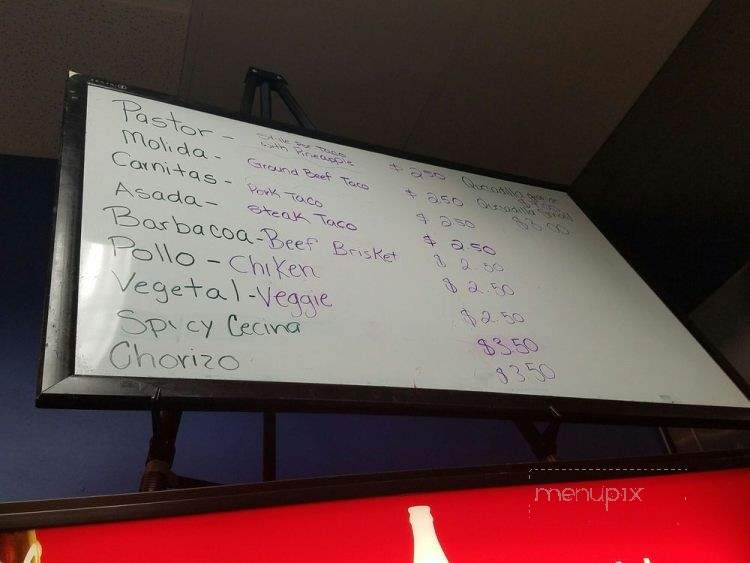 Pastor - with Pineapple $2.50
Molida - Ground Beef Taco $2.50
Carnitas - Pork Taco $2.50
Asada - Steak Taco $2.50
Barbacoa - Beef Brisket $2.50
Pollo - Chiken $2.50
Vegetal - Veggie $2.50
Spicy Cecina $3.50
Chorizo $3.50
Quesadilla
Quesadilla Small $5.00
menupix